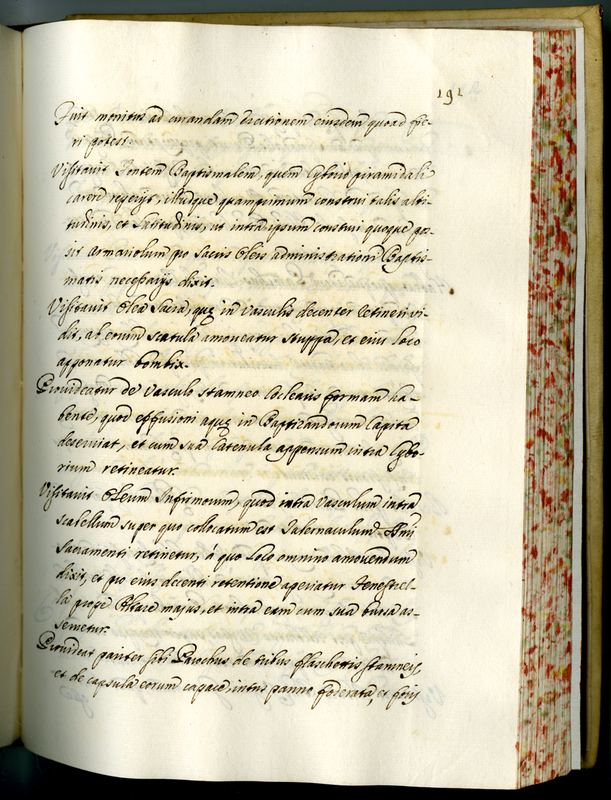 191
Fuit monitus ad curandam erectionem eiusdem quoad fie-
ri potest.
Visitavit Fontem Baptismalem, quem Cyborio piramidali
carere reperijt, illudque quamprimum construi talis alti-
tudinis, et Latitudinis, ut intra ipsum constui queque pos-
sit Armariolum pro Sacris Oleis administrationi Baptis-
matis necessarijs dixit.
Visitavit Olea Sacra, quę in Vasculis decenter retineri vi-
dit, ab eorum scatula amoveatur stuppa, et eius loco
apponatur bombix.
Provideatur de Vasculo stamneo Coclearis formam ha-
bente, quod effusioni aquę in Baptizandorum Capita
deserviat, et cum sua Catenula appensum intra Cybo-
rium retineatur.
Visitavit Oleum Infirmorum, quod intra Vasculum intra
scabellum super quo collocatum est Tabernaculum SSmi
Sacramenti retinetur, á quo loco omnino amovendum
dixit, et pro eius decenti retentione aperiatur Fenestrel-
la prope Altare majus, et intra eam cum sua bursa as-
servetur.
Provideat pariter sibi Parochus de tribus flaschettis stamneis,
et de capsula eorum capace, intus panno foderata, et